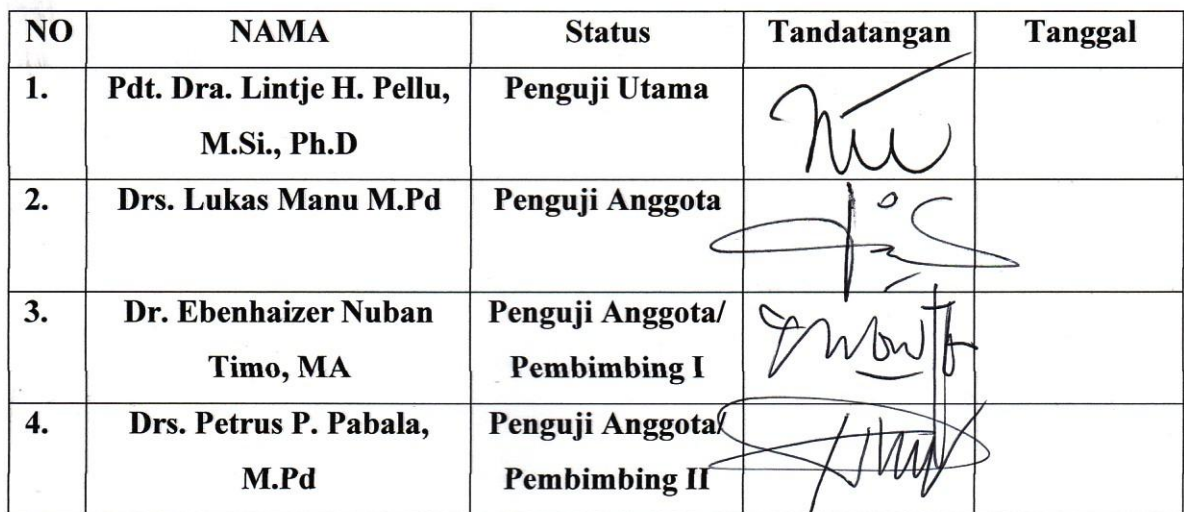 NO NAMA Status Tandatangan Tanggal
1. Pdt. Dra. Lintje H. Pellu, Penguji Utama
M.Si., Ph.D
2. Drs. Lukas Manu M.Pd Penguji Anggota
3. Dr. Ebenhaizer Nuban Penguji Anggota/
Timo, MA Pembimbing I
4. Drs. Petrus P. Pabala, Penguji Anggota/
M.Pd Pembimbing II